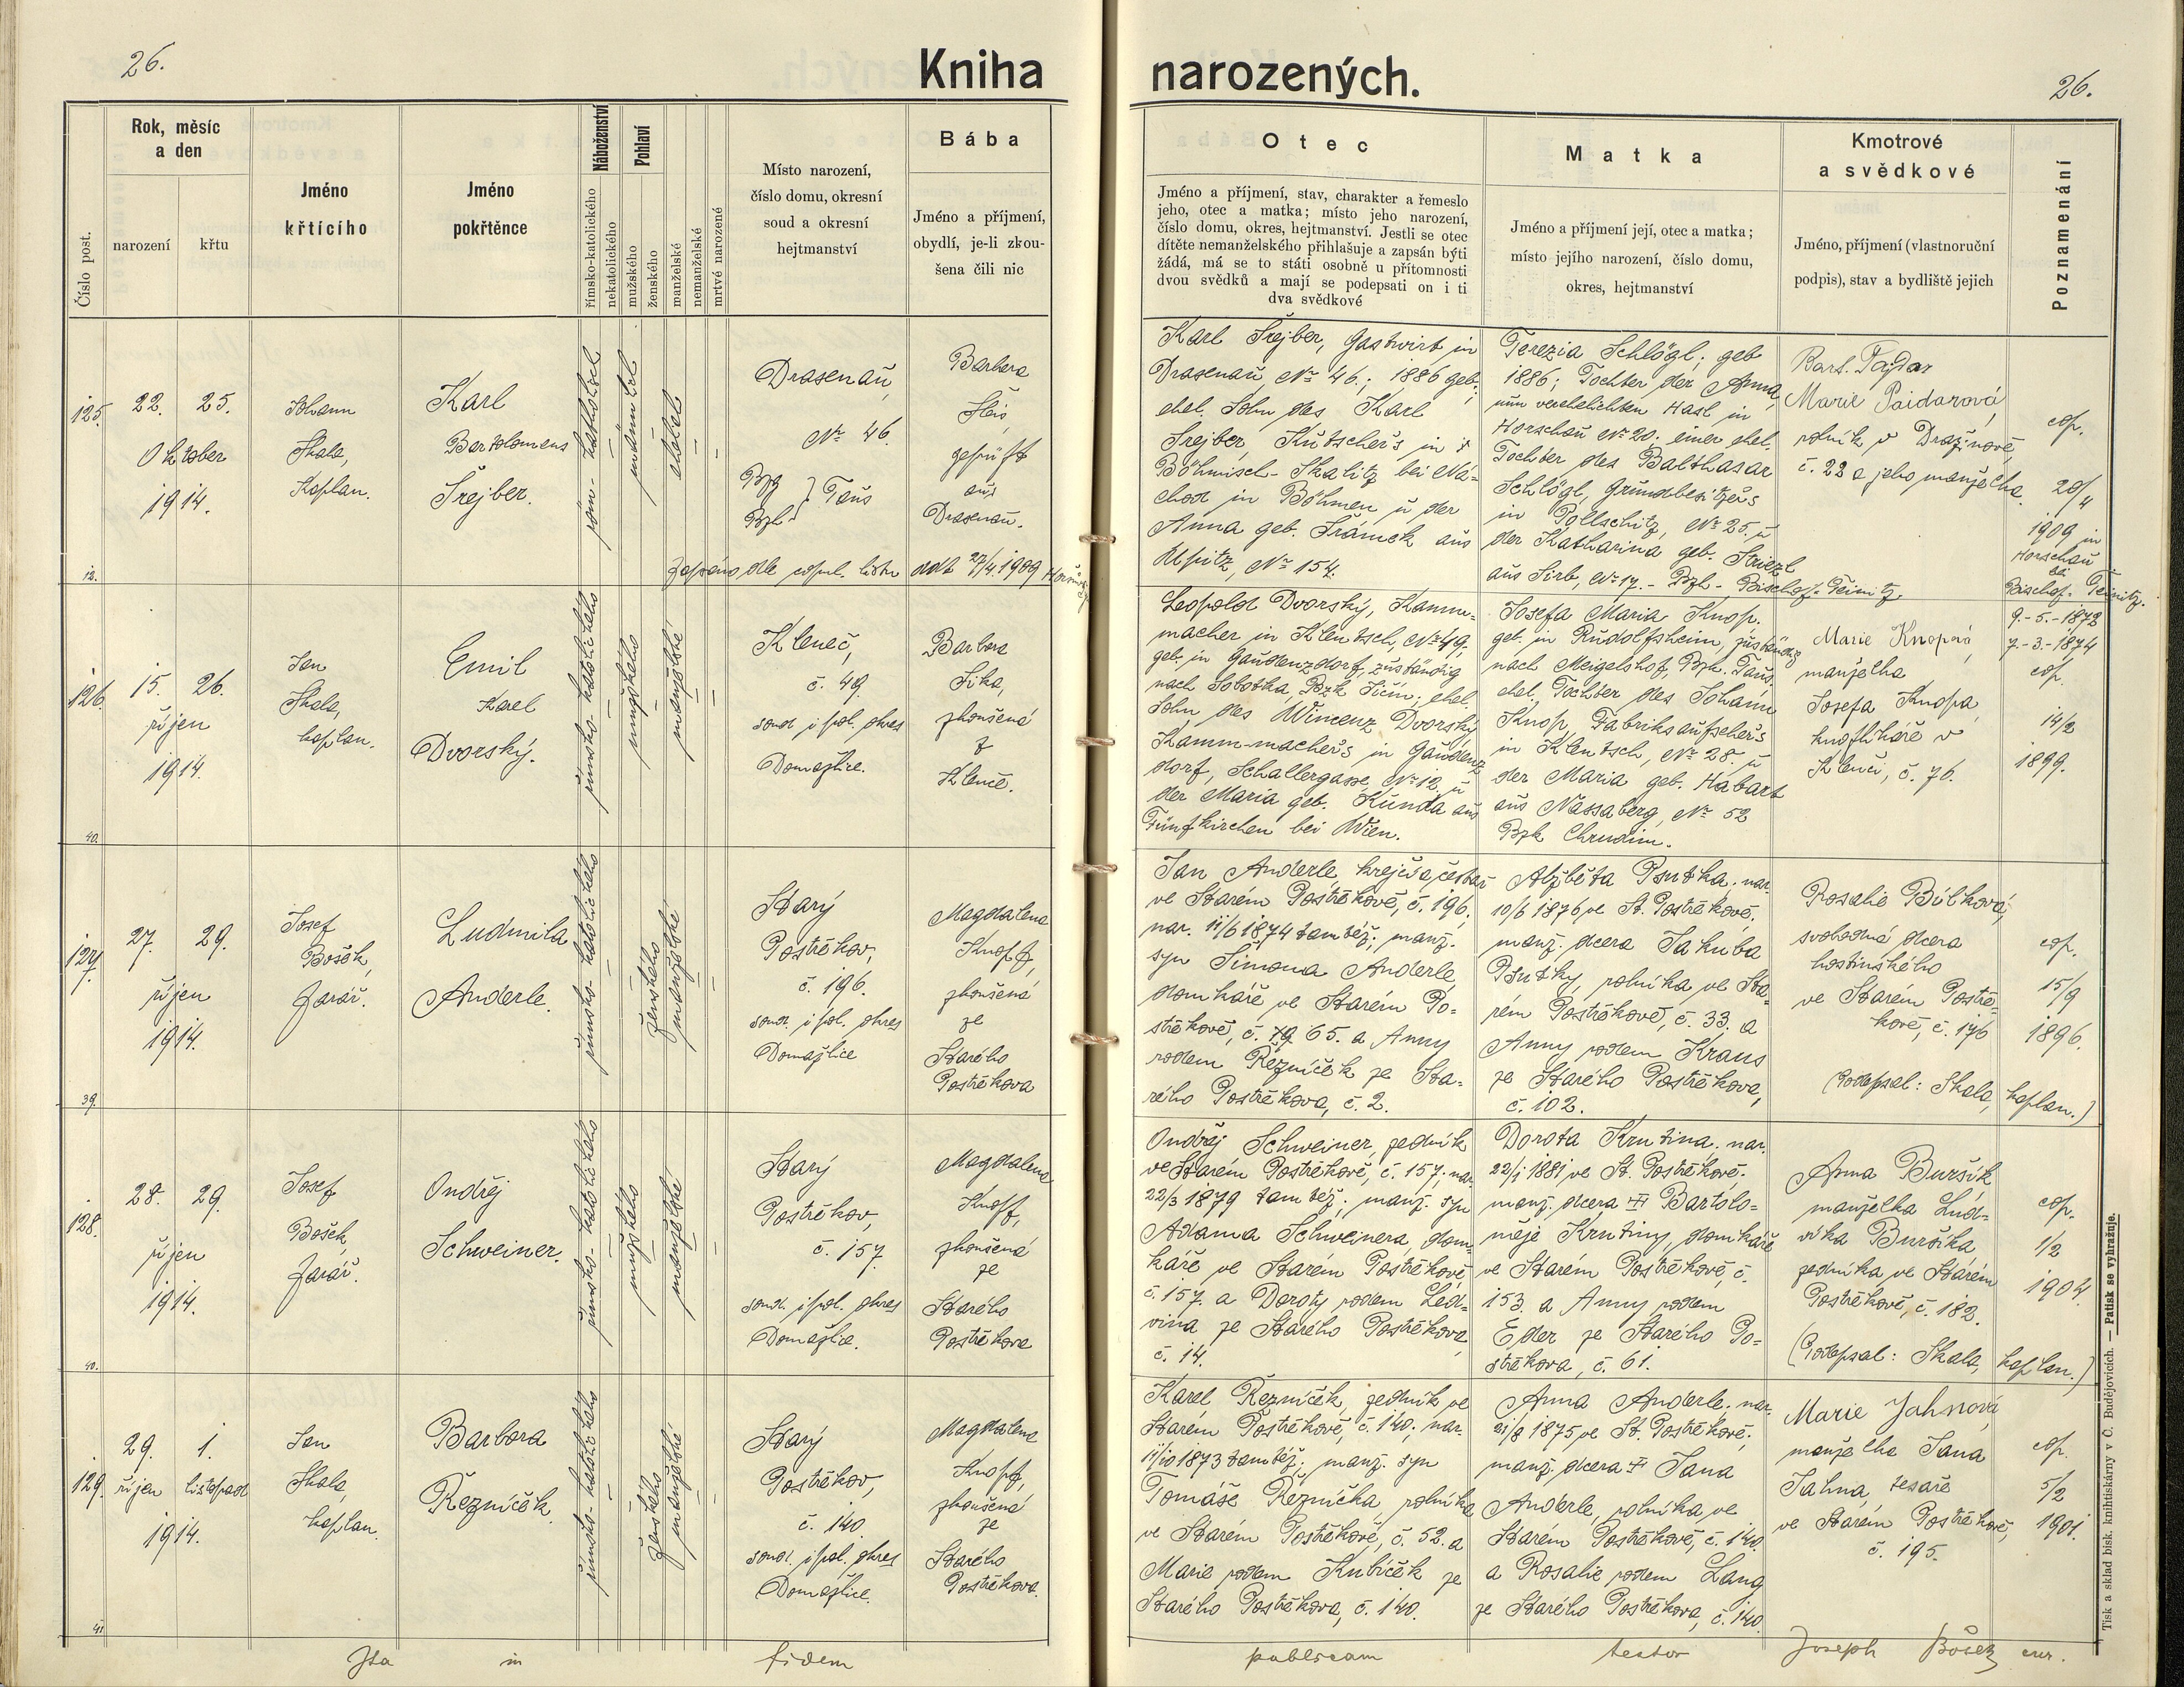 26.
Kniha narozených.
26.
Číslo post.
Rok, měsíc
a den
narození
křtu
Jméno
křtícího
Jméno
pokřtěnce
Náboženství
římsko-katolického
nekatolického
Pohlaví
mužského
ženského
manželské
nemanželské
mrtvé narozené
Místo narození,
číslo domu, okresní
soud a okresní
hejtmanství
Bába
Jméno a příjmení,
obydlí, je-li zkou-
šena čili nic
Otec
Jméno a příjmení, stav, charakter a řemeslo
jeho, otec a matka; místo jeho narození,
číslo domu, okres, hejtmanství. Jestli se otec
dítěte nemanželského přihlašuje a zapsán býti
žádá, má se to státi osobně u přítomnosti
dvou svědků a mají se podepsati on i ti
dva svědkové
Matka
Jméno a příjmení její, otec a matka;
místo jejího narození, číslo domu,
okres, hejtmanství
Kmotrové
a svědkové
Jméno, příjmení (vlastnoruční
podpis), stav a bydliště jejich
Poznamenání
125.
22. 25.
Oktober
1914.
Johann
Skala,
Kaplan.
Karl
Bartolomeus
Šrejber.
röm.- katholisch
männlich
ehelich
Drasenau,
No 46.
Bzg
Bzh } Taus
Barbara
geprüft
aus
Drasenau.
Karl Šrejber, Gastwirt in
Drasenau, No 46.; 1886 geb.;
ehel. Sohn des Karl
Šrejber, Kutschers in
Böhmisch-Skalitz bei Ná-
chod in Böhmen u der
Anna geb. Šrámek aus
Úpitz, No 154.
Terezia Schlögl; geb
1886; Tochter der Anna,
nun verehelichten Hasl in
Horschau No 20. einer ehel.
Tochter des Balthasar
Schlögl, Grundbesitzers
in Pollschitz, No 25. u
der Katharina geb. Striezl
aus Sirb, No 17. - Bzh - Bischof-Teinitz.
Bart. Pajdar
Marie Paidarová,
rolník v Dražinově,
č. 22 a jeho manželka.
cop.
20/4
1909 in
Horschau
bei
Bischof-Teinitz.
12.
Zapsáno dle copul. listu ddt 27/4.1909
126.
15. 26.
říjen
1914.
Jan
Skala,
kaplan.
Emil
Karel
Dvorský.
římsko-katolického
mužského
manželské
Kleneč,
č. 49.
soud i pol. okres
Domažlice.
Barbora
Sika,
zkoušená
z
Klenče.
Leopold Dvorský, Kamm-
macher in Klentsch, No 49.
geb. in Gaudenzdorf, zuständig
nach Sobotka, Bzk Jičín; ehel.
Sohn des Winzenz Dvorský
Kamm-machers in Gaudenz
dorf, Schallergasse, No 12, u
der Maria geb. Kunda aus
Fünfkirchen bei Wien.
Josefa Maria Knop.
geb. in Rudolfsheim, zuständig
nach Meigelshof, Bzk. Taus.
ehel. Tochter des Johann
Knop, Fabriksaufsehers
in Klentsch, No 28. u
der Maria geb. Habart
aus Nassaberg, No 52
Bzk Chrudim.
Marie Knopová,
manželka
Josefa Knopa,
knoflíkáře v
Klenči, č. 76.
9.-5.-1872
7.-3.-1874
cop.
14/2
1899.
40.
127.
27. 29.
říjen
1914.
Josef
Bošek,
farář.
Ludmila
Anderle.
římsko-katolického
ženského
manželské
Starý
Postřekov,
č. 196.
soud. i pol. okres
Domažlice
Magdalena
Knopf,
zkoušená
ze
Starého
Postřekova
Jan Anderle, krejčí a cestář
ve Starém Postřekově, č. 196.
nar. 11/6 1874 tamtéž; manž.
syn Šimona Anderle,
domkáře ve Starém Po-
střekově, č. 65. a Anny
rodem Řezníček ze Sta-
rého Postřekova, č. 2.
Alžběta Psutka; nar.
10/6 1876 ve St. Postřekově.
manž. dcera Jakuba
Psutky, rolníka ve Sta-
rém Postřekově, č. 33. a
Anny rodem Kraus
ze Starého Postřekova,
č. 102.
Rosalie Bílková,
svobodná dcera
hostinského
ve Starém Postře-
kově, č. 176
(Podepsal: Skala, kaplan.)
cop.
15/9
1896.
39.
128.
28. 29.
říjen
1914.
Josef
Bošek,
farář.
Ondřej
Schweiner.
římsko-katolického
mužského
manželské
Starý
Postřekov,
č. 157.
soud. i pol. okres
Domažlice.
Magdalena
Knopf,
zkoušená
ze
Starého
Postřekova
Ondřej Schweiner, zedník
ve Starém Postřekově, č. 157; nar.
22/3 1879 tamtéž; manž. syn
Adama Schweinera, dom-
káře ve Starém Postřekově,
č. 157. a Doroty rodem Led-
vina ze Starého Postřekova,
č. 14.
Dorota Krutina. nar.
22/1 1881 ve St. Postřekově.
manž. dcera Bartolo-
měje Krutiny, domkáře
ve Starém Postřekově, č.
153. a Anny rodem
Eder ze Starého Po-
střekova, č. 61.
Anna Buršík
manželka Lud-
víka Buršíka,
zedníka ve Starém
Postřekově, č. 182.
(Podepsal: Skala, kaplan.)
cop.
1/2
1904.
40.
129.
29. 1.
říjen listopad
1914.
Jan
Skala,
kaplan.
Barbora
Řezníček.
římsko-katolického
ženského
manželské
Starý
Postřekov,
č. 140.
soud. i pol. okres
Domažlice.
Magdalena
Knopf,
zkoušená
ze
Starého
Postřekova.
Karel Řezníček, zedník ve
Starém Postřekově, č. 140.; nar.
11/10 1873 tamtéž; manž. syn
Tomáše Řezníčka, rolníka
ve Starém Postřekově, č. 52. a
Marie rodem Kubíček ze
Starého Postřekova, č. 140.
Anna Anderle. nar.
21/8 1875 ve St. Postřekově;
manž. dcera Jana
Anderle, rolníka, ve
Starém Postřekově, č. 140.
a Rosalie rodem Lang
ze Starého Postřekova, č. 140.
Marie Jahnová
manželka Jana
Jahna, tesaře
ve Starém Postřekově,
č. 195.
cop.
5/2
1901.
41.
Ita in fidem publicam testor Joseph Bošek cur.
Tisk a sklad bisk. knihtiskárny v Č. Budějovicích. — Patisk se vyhražuje.